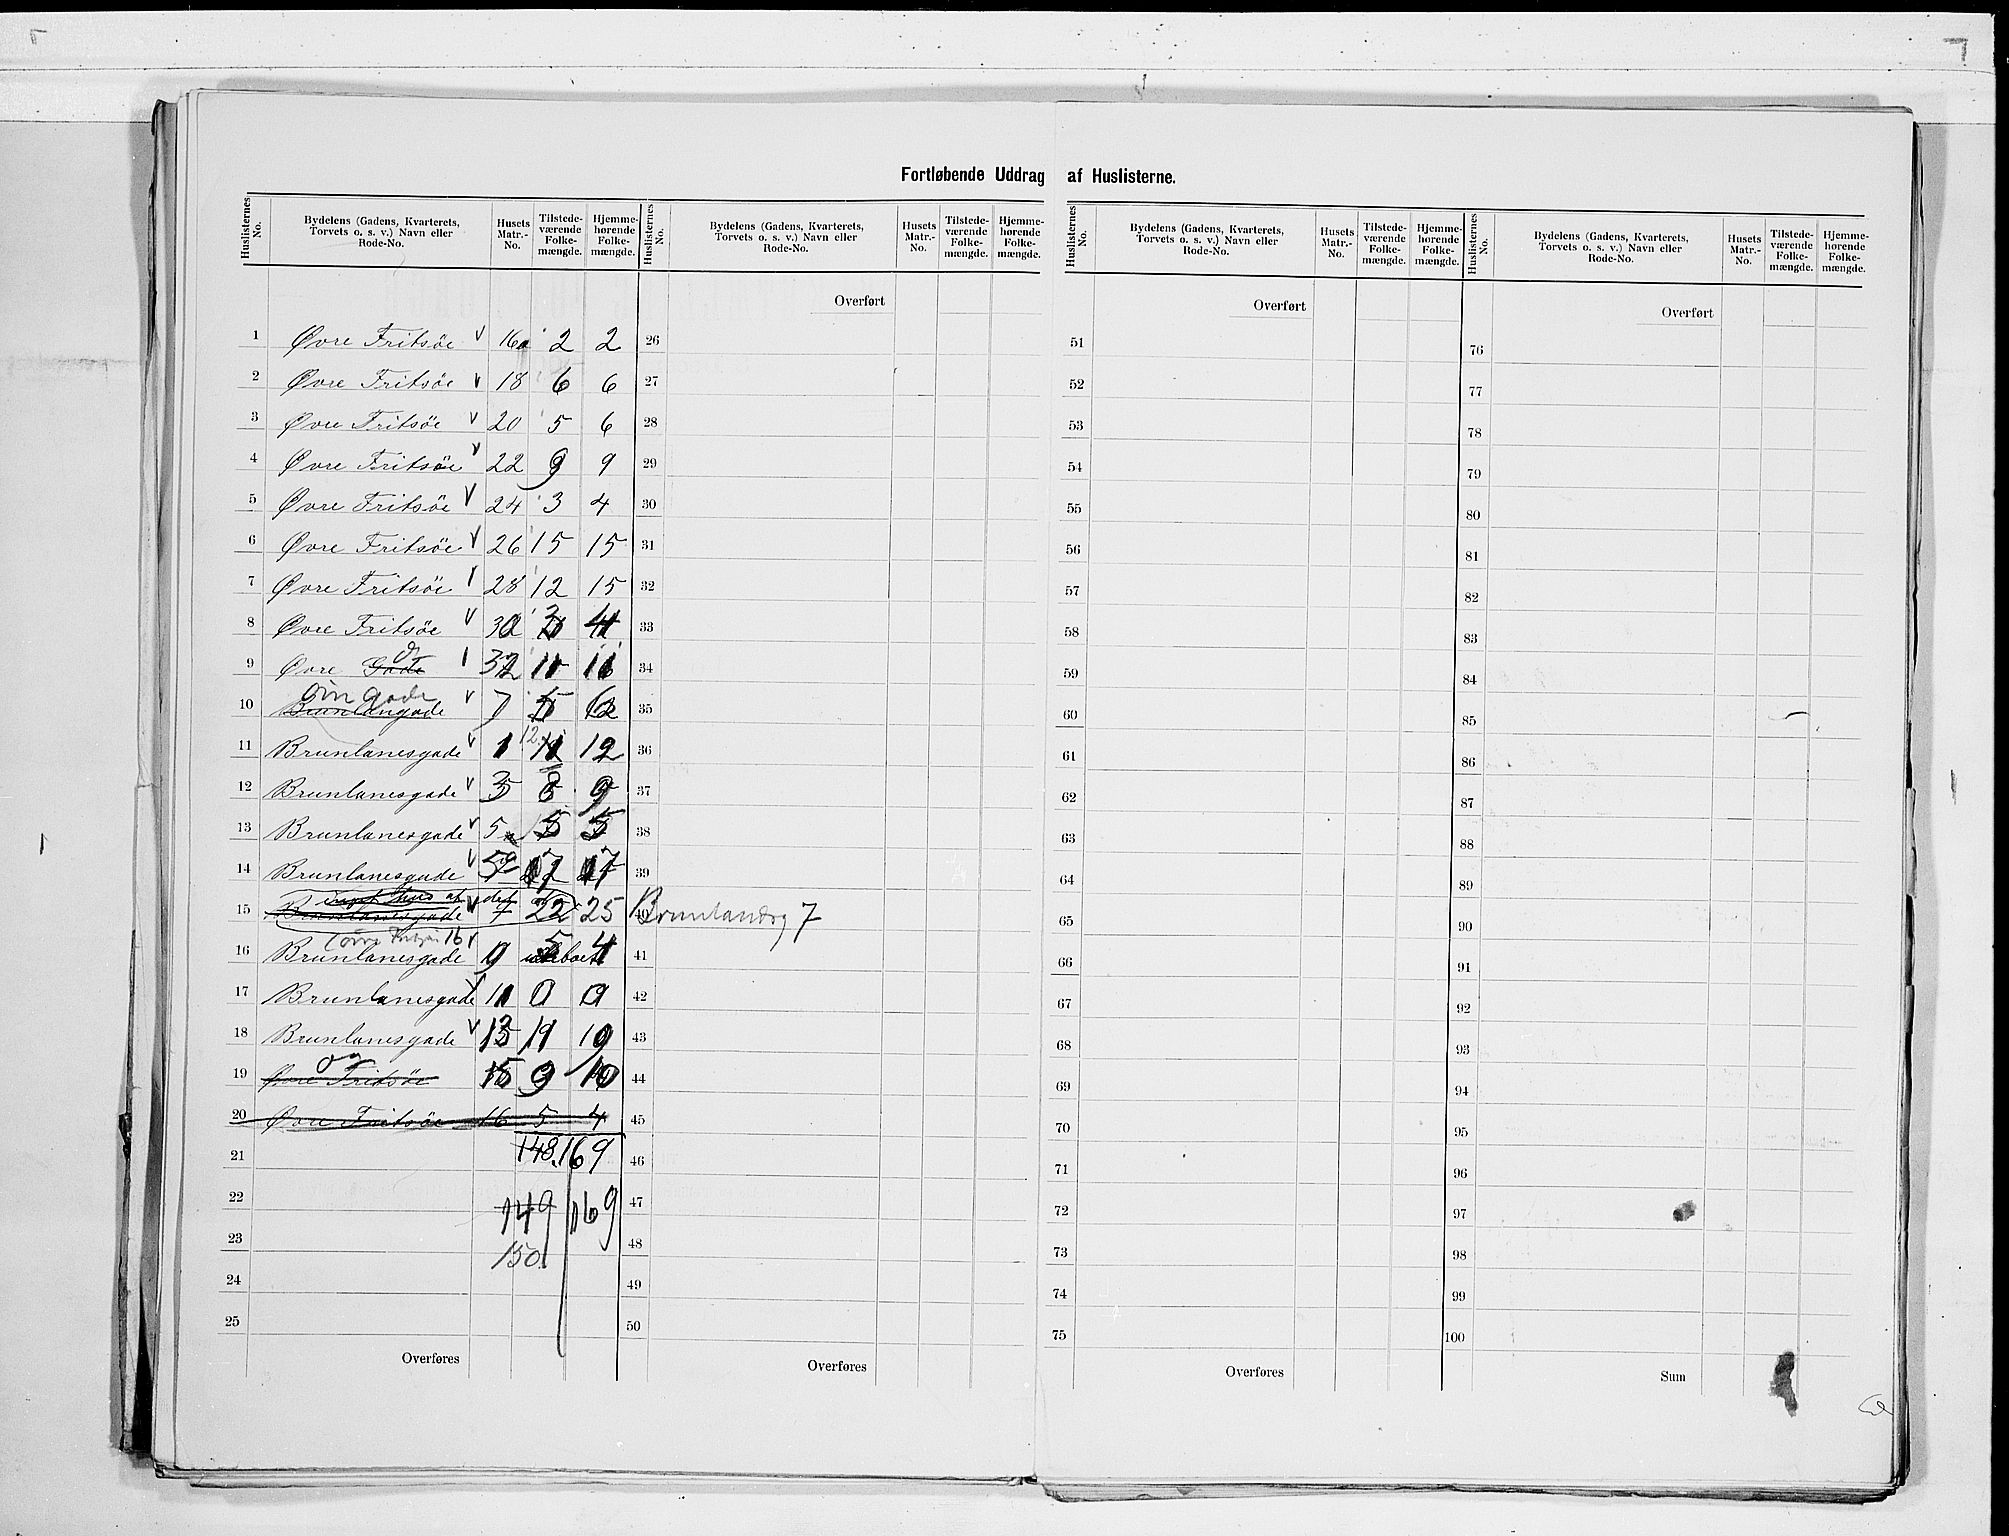 Fortløbende Uddrag af Huslisterne.
Huslisternes No. Bydelens (Gadens, Kvarterets, Torvets o. s. v.) Navn eller Rode-No. Husets Matr.-No. Tilstedeværende Folkemængde. Hjemmehørende Folkemængde.
Huslisternes No. Bydelens (Gadens, Kvarterets, Torvets o. s. v.) Navn eller Rode-No. Husets Matr.-No. Tilstedeværende Folkemængde. Hjemmehørende Folkemængde.
Huslisternes No. Bydelens (Gadens, Kvarterets, Torvets o. s. v.) Navn eller Rode-No. Husets Matr.-No. Tilstedeværende Folkemængde. Hjemmehørende Folkemængde.
Huslisternes No. Bydelens (Gadens, Kvarterets, Torvets o. s. v.) Navn eller Rode-No. Husets Matr.-No. Tilstedeværende Folkemængde. Hjemmehørende Folkemængde.
1 Øvre Fritsøe 16a 2 2
2 Øvre Fritsøe 18 6 6
3 Øvre Fritsøe 20 5 6
4 Øvre Fritsøe 22 9 9
5 Øvre Fritsøe 24 3 4
6 Øvre Fritsøe 26 15 15
7 Øvre Fritsøe 28 12 15
8 Øvre Fritsøe 30 3 4
9 Øvre Gade 32 11 11
10 Brunlangade 7 5
11 Brunlanesgade 1 12 12
12 Brunlanesgade 3 8 9
13 Brunlanesgade 5 5 5
14 Brunlanesgade 17 17
15 Brunlanesgade 7 22 25
16 Brunlanesgade 9 5 4
17 Brunlanesgade 11 0 0
18 Brunlanesgade 13 11
19 Øvre Fritsøe 15 9 10
20 Øvre Fritsøe 16 5 4
21 148 169
22 149 169
23 150
24
25
Overføres
Overført
26
27
28
29
30
31
32
33
34
35
36
37
38
39
40 7
41
42
43
44
45
46
47
48
49
50
Overføres
Overført
51
52
53
54
55
56
57
58
59
60
61
62
63
64
65
66
67
68
69
70
71
72
73
74
75
Overføres
Overført
76
77
78
79
80
81
82
83
84
85
86
87
88
89
90
91
92
93
94
95
96
97
98
99
100
Sum